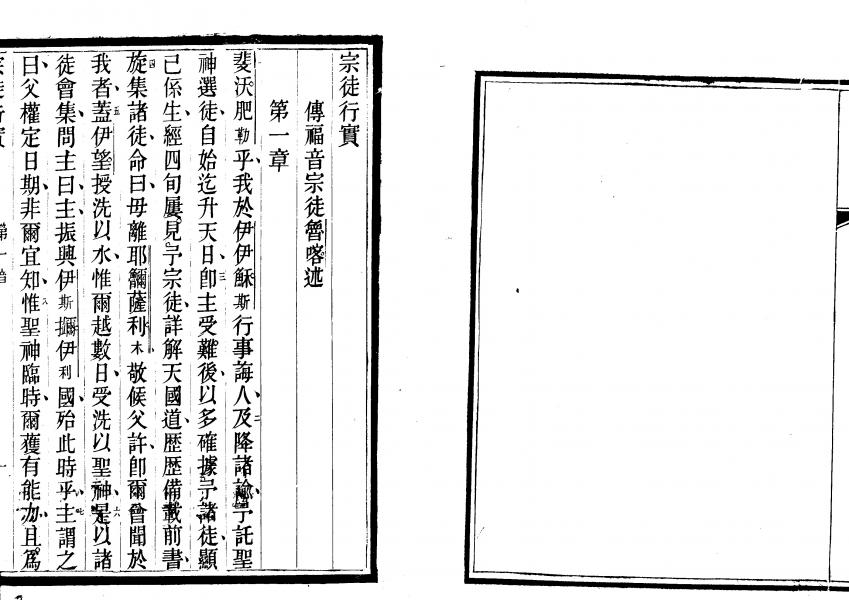 宗徒行實
傳福音宗徒魯喀述
第一章
斐沃肥勒乎我於伊伊穌斯行事誨人及降諸諭予託聖
神選徒自始迄升天日卽主受難後以多確據予諸徒顯
己係生經四旬屢見予宗徒詳解天國道歷歷備載前書
旋集諸徒命曰毋離耶𧟌薩利木敬候父許卽爾曾聞於
我者蓋伊望授洗以水惟爾越數日受洗以聖神是以諸
徒會集問主曰主振興伊斯㩢伊利國殆此時乎主謂之
曰父權定日期非爾宜知惟聖神臨時爾獲有能力且爲
宗徒行實 第一章 一